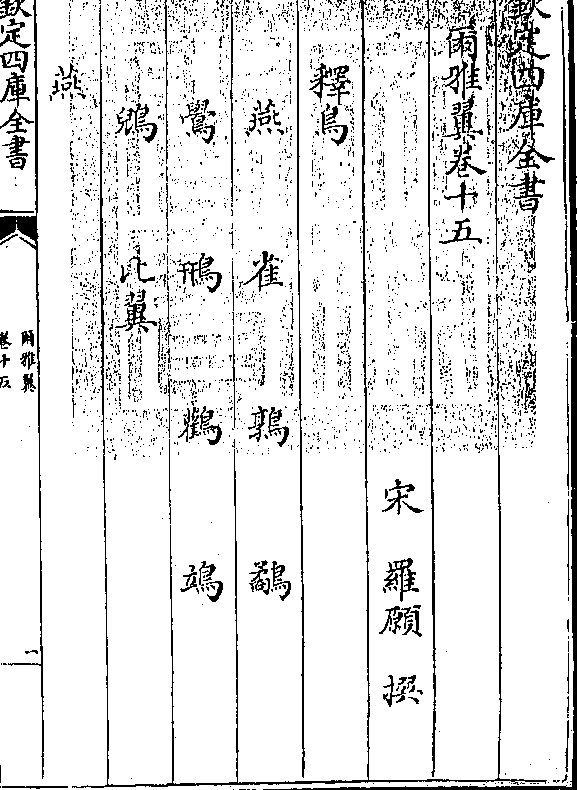 欽定四庫全書
爾雅翼卷十五
宋 羅願 撰
釋鳥
燕 雀 鶉
鶯 鳽 鸛
鶂 比翼
燕
欽定四庫全書
爾雅翼
卷十五
一